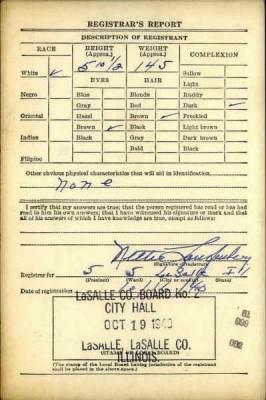 REGISTRAR'S REPORT
DESCRIPTION OF REGISTRANT
RACE HEIGHT (Approx.) WEIGHT (Approx.) COMPLEXION
5 10 1/2 145
White ✓ EYES HAIR Sallow
Light
Negro Blue Blonde Ruddy
Gray Red Dark ✓
Oriental Hazel Brown ✓ Freckled
Brown ✓ Black Light brown
Indian Black Gray Dark brown
Bald Black
Filipino
Other obvious physical characteristics that will aid in identification
None
I certify that my answers are true; that the person registered has read or has had
read to him his own answers; that I have witnessed his signature or mark and that
all of his answers of which I have knowledge are true, except as follows:
Nettie
(Signature of registrar)
Registrar for 5 5 LaSalle Ill
(Precinct) (Ward) (City or county) (State)
Date of registration
LaSALLE CO. BOARD No. 2
CITY HALL
OCT 19 1940
LaSALLE, LaSALLE CO.
ILLINOIS.
(STAMP OF LOCAL BOARD)
(The stamp of the Local Board having jurisdiction of the registrant
shall be placed in the above space.)